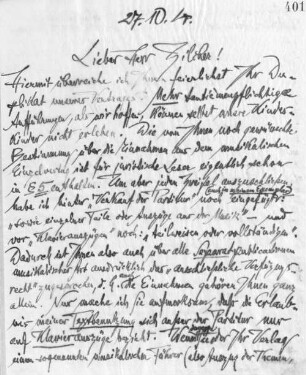 401
27. 10. 17.
Lieber Herr Hilcher!
Hiermit überreiche ich Ihnen feierlichst Ihr Du-
plikat unseres Vertrages. Mehr tantiemenpflichtige
Aufführungen, als wir hoffen, können selbst unsere Kindes-
kinder nicht erleben. Die von Ihnen noch gewünschte
Bestimmung über die Einnahmen aus dem musikalischen
Einzelvertrieb ist für juristische Leser eigentlich schon
in § 5 enthalten. Um aber jeden Zweifel auszuschließen
habe ich hinter "Verkauf der Partitur" noch eingefügt:
"sowie einzelner Teile oder Auszüge aus der Musik" – und
vor Klavierauszügen noch: "teilweisen oder vollständigen".
Dadurch ist Ihnen also auch über alle Separatpublikationen
musikalischer Art ausdrücklich das unbeschränkte Verfügungs-
recht zugesprochen, d. h. die Einnahmen gehören Ihnen ganz
allein. Nur mache ich Sie aufmerksam, dass die Erlaub-
nis meiner Textbenutzung sich außer der Partitur nur
auf Klavierauszüge bezieht. Wenn Ihr Verlag
einen sogenannten musikalischen Führer (also Auszug der Themen,